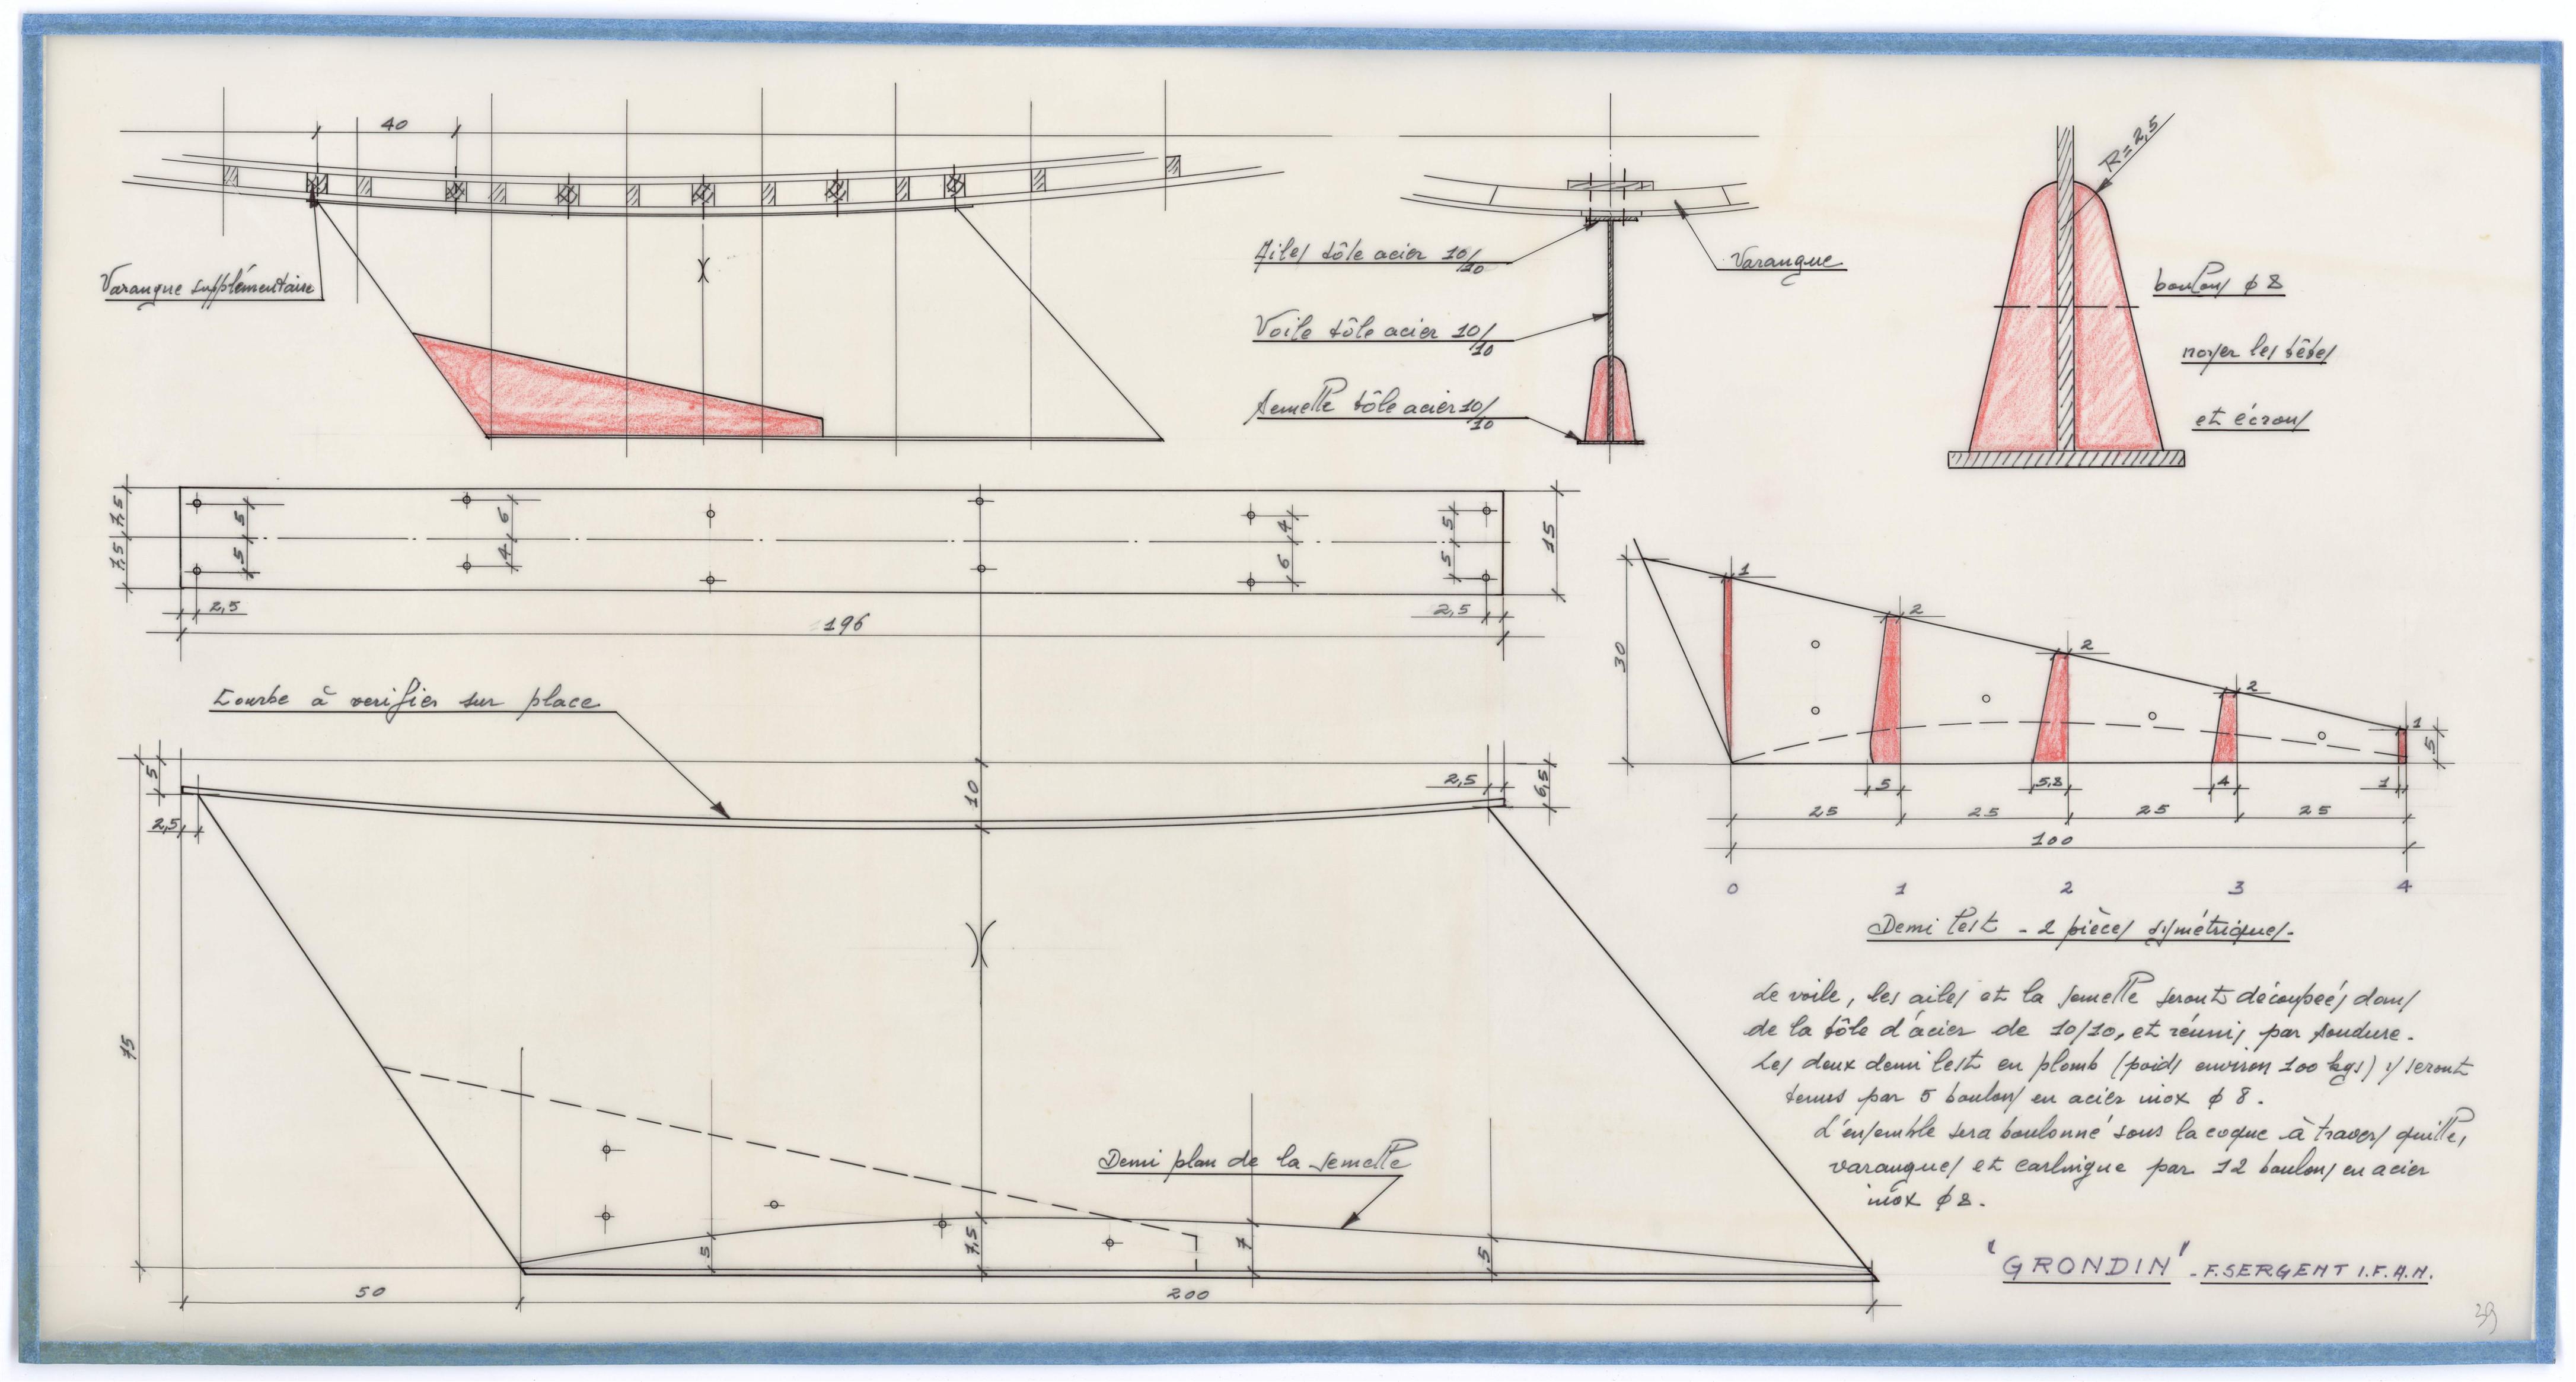 40
Varangue supplémentaire
Ailes tôle acier 10/10
Voile tôle acier 10/10
Semelle tôle acier 10/10
Varangue
R=2,5
boulons ϕ 8
noyer les têtes
et écrous
7,5 7,5
5 5
6 4
4 6
5 5
15
2,5
2,5
196
Courbe à verifier sur place
5
2,5
10
2,5
6,5
75
Demi plan de la semelle
5
7,5
7
5
50
200
30
1
2
2
2
1
5
5
5,8
4
1
25
25
25
25
100
0 1 2 3 4
Demi lest - 2 pièces symétriques.
Le voile, les ailes et la semelle seront découpées dans
de la tôle d'acier de 10/10, et réunis par soudure.
Les deux demi lest en plomb (poids environ 100 kgs) y seront
tenus par 5 boulons en acier inox ϕ 8.
L'ensemble sera boulonné sous la coque à travers quille,
varangues et carlingue par 12 boulons en acier
inox ϕ 8.
"GRONDIN" - F.SERGENT I.F.A.N.
39